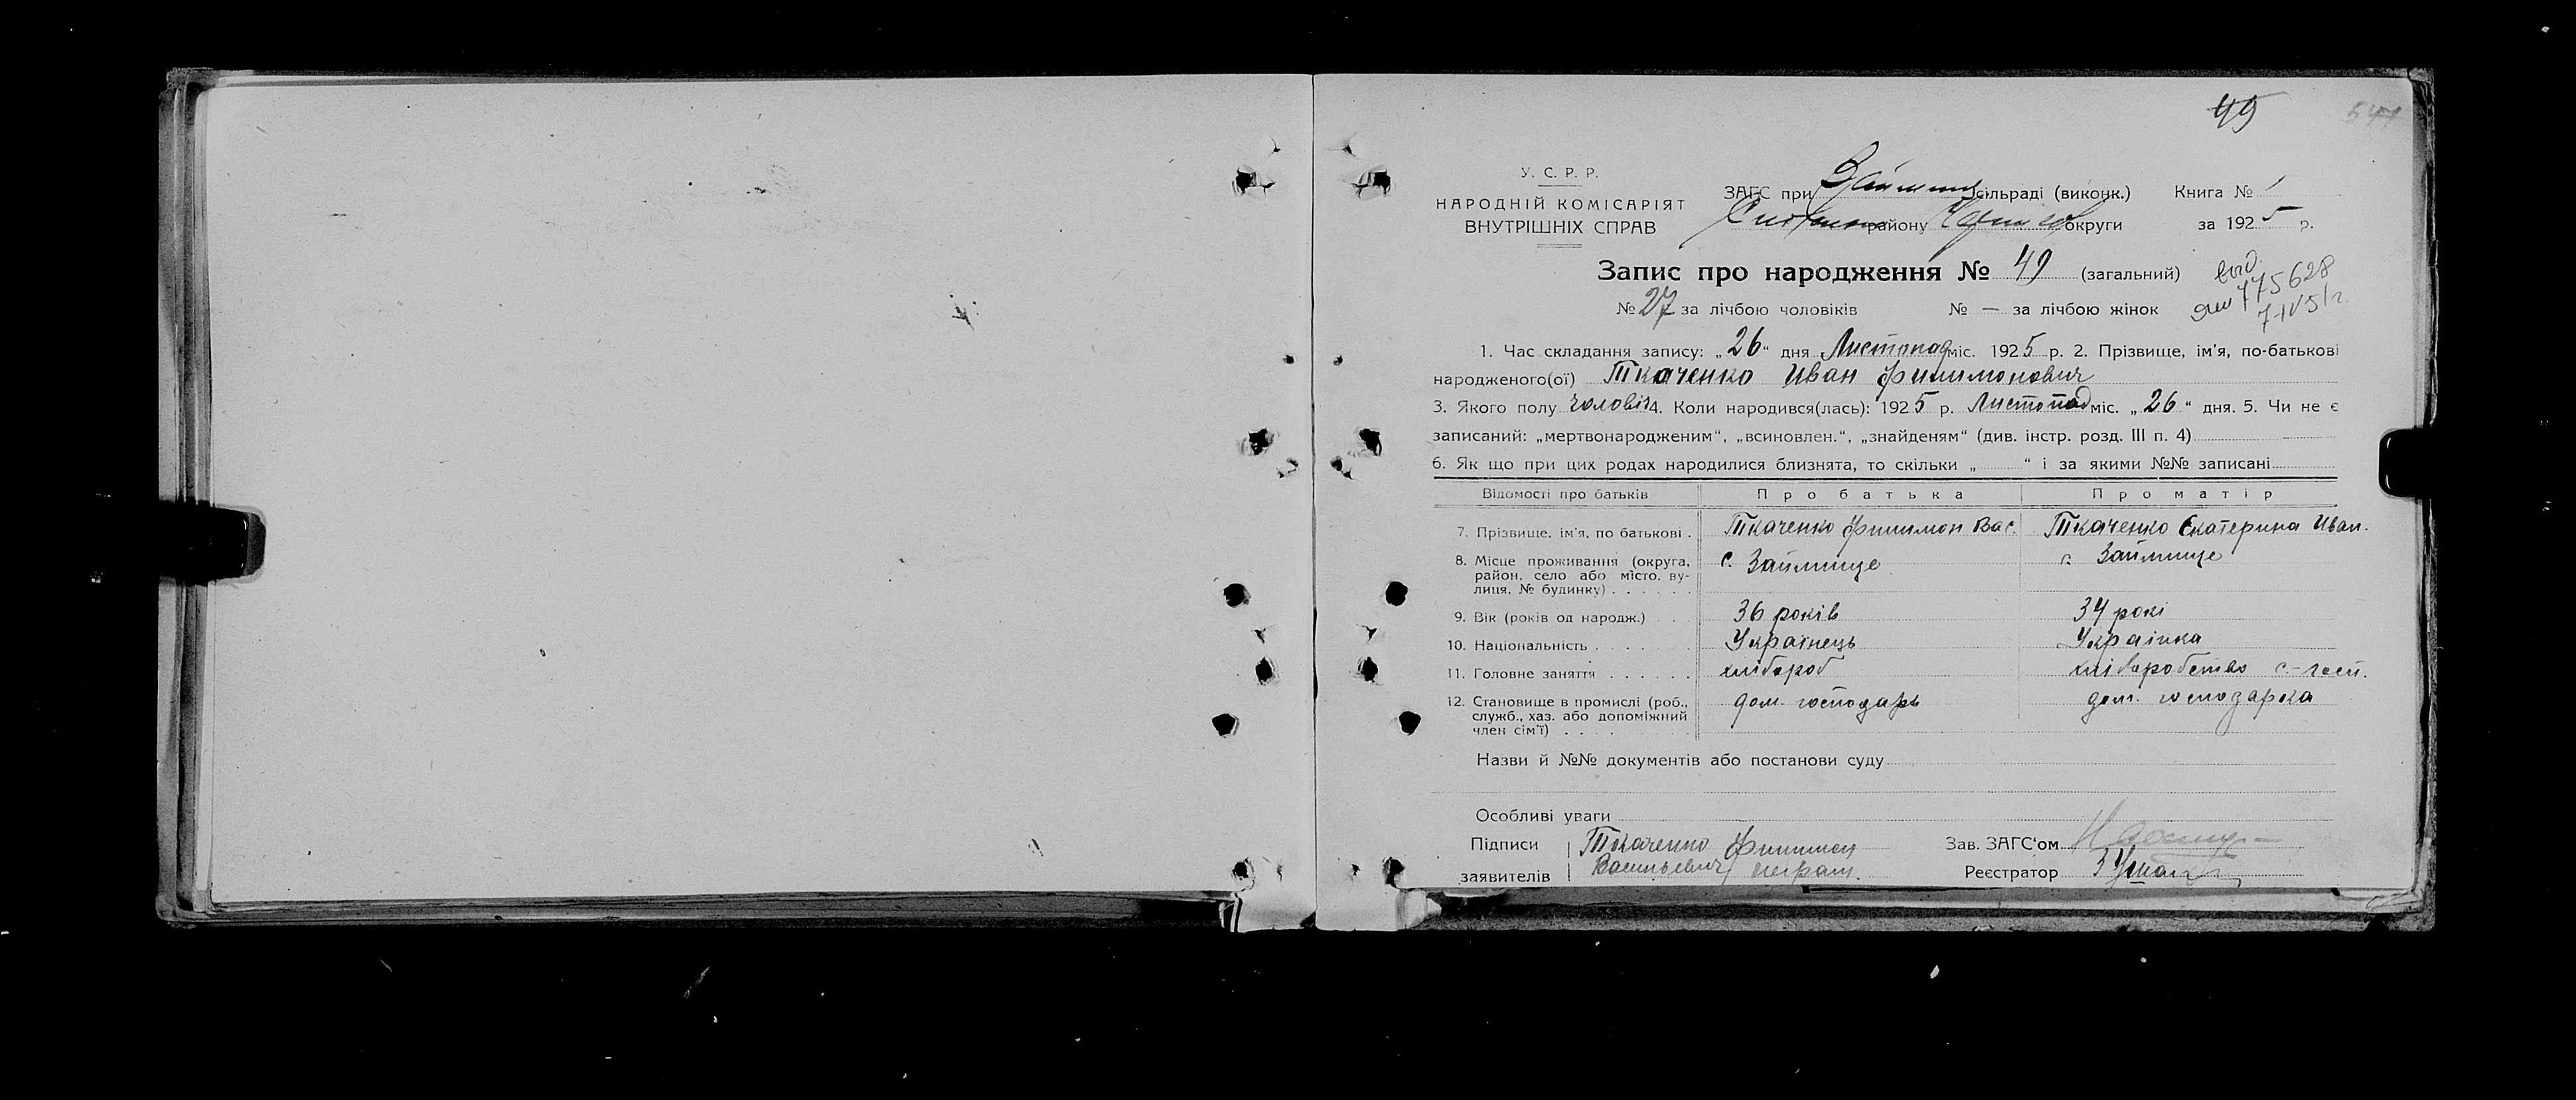 49
У. С. Р. Р.
НАРОДНІЙ КОМІСАРІЯТ
ВНУТРІШНІХ СПРАВ
ЗАГС при сільраді (виконк.) Книга № 1
району округи за 1925 р.
Запис про народження № 49 (загальний)
№ 27 за лічбою чоловіків № — за лічбою жінок
775628
1. Час складання запису: „26“ дня Листопад міс. 1925 р. 2. Прізвище, ім'я, по-батькові
народженого(ої) Ткаченко Иван Филимонович
3. Якого полу чоловіч 4. Коли народився(лась): 1925 р. Листопад міс. „26“ дня. 5. Чи не є
записаний: „мертвонародженим“, „всиновлен.“, „знайденям“ (див. інстр. розд. III п. 4)
6. Як що при цих родах народилися близнята, то скільки „ “ і за якими №№ записані
Відомості про батьків Про батька Про матір
7. Прізвище, ім'я, по батькові . Ткаченко Филимон Вас. Ткаченко Екатерина Иван.
8. Місце проживання (округа, с. Займище с. Займище
район, село або місто, ву-
лиця, № будинку) . . . . . .
9. Вік (років од народж.) . . 36 років 34 рокі
10. Національність . . . . . . Українець Українка
11. Головне заняття . . . . . . хлібороб хліборобство с.-госп.
12. Становище в промислі (роб., дом. господарь дом. господарка
служб., хаз. або допоміжний
член сім'ї) . . . .
Назви й №№ документів або постанови суду
Особливі уваги
Підписи Ткаченко Филимон Зав. ЗАГС'ом
заявителів Васильевич неграм. Реєстратор